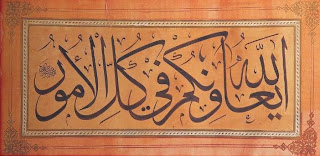 الله يعاونكم في كل الأمور